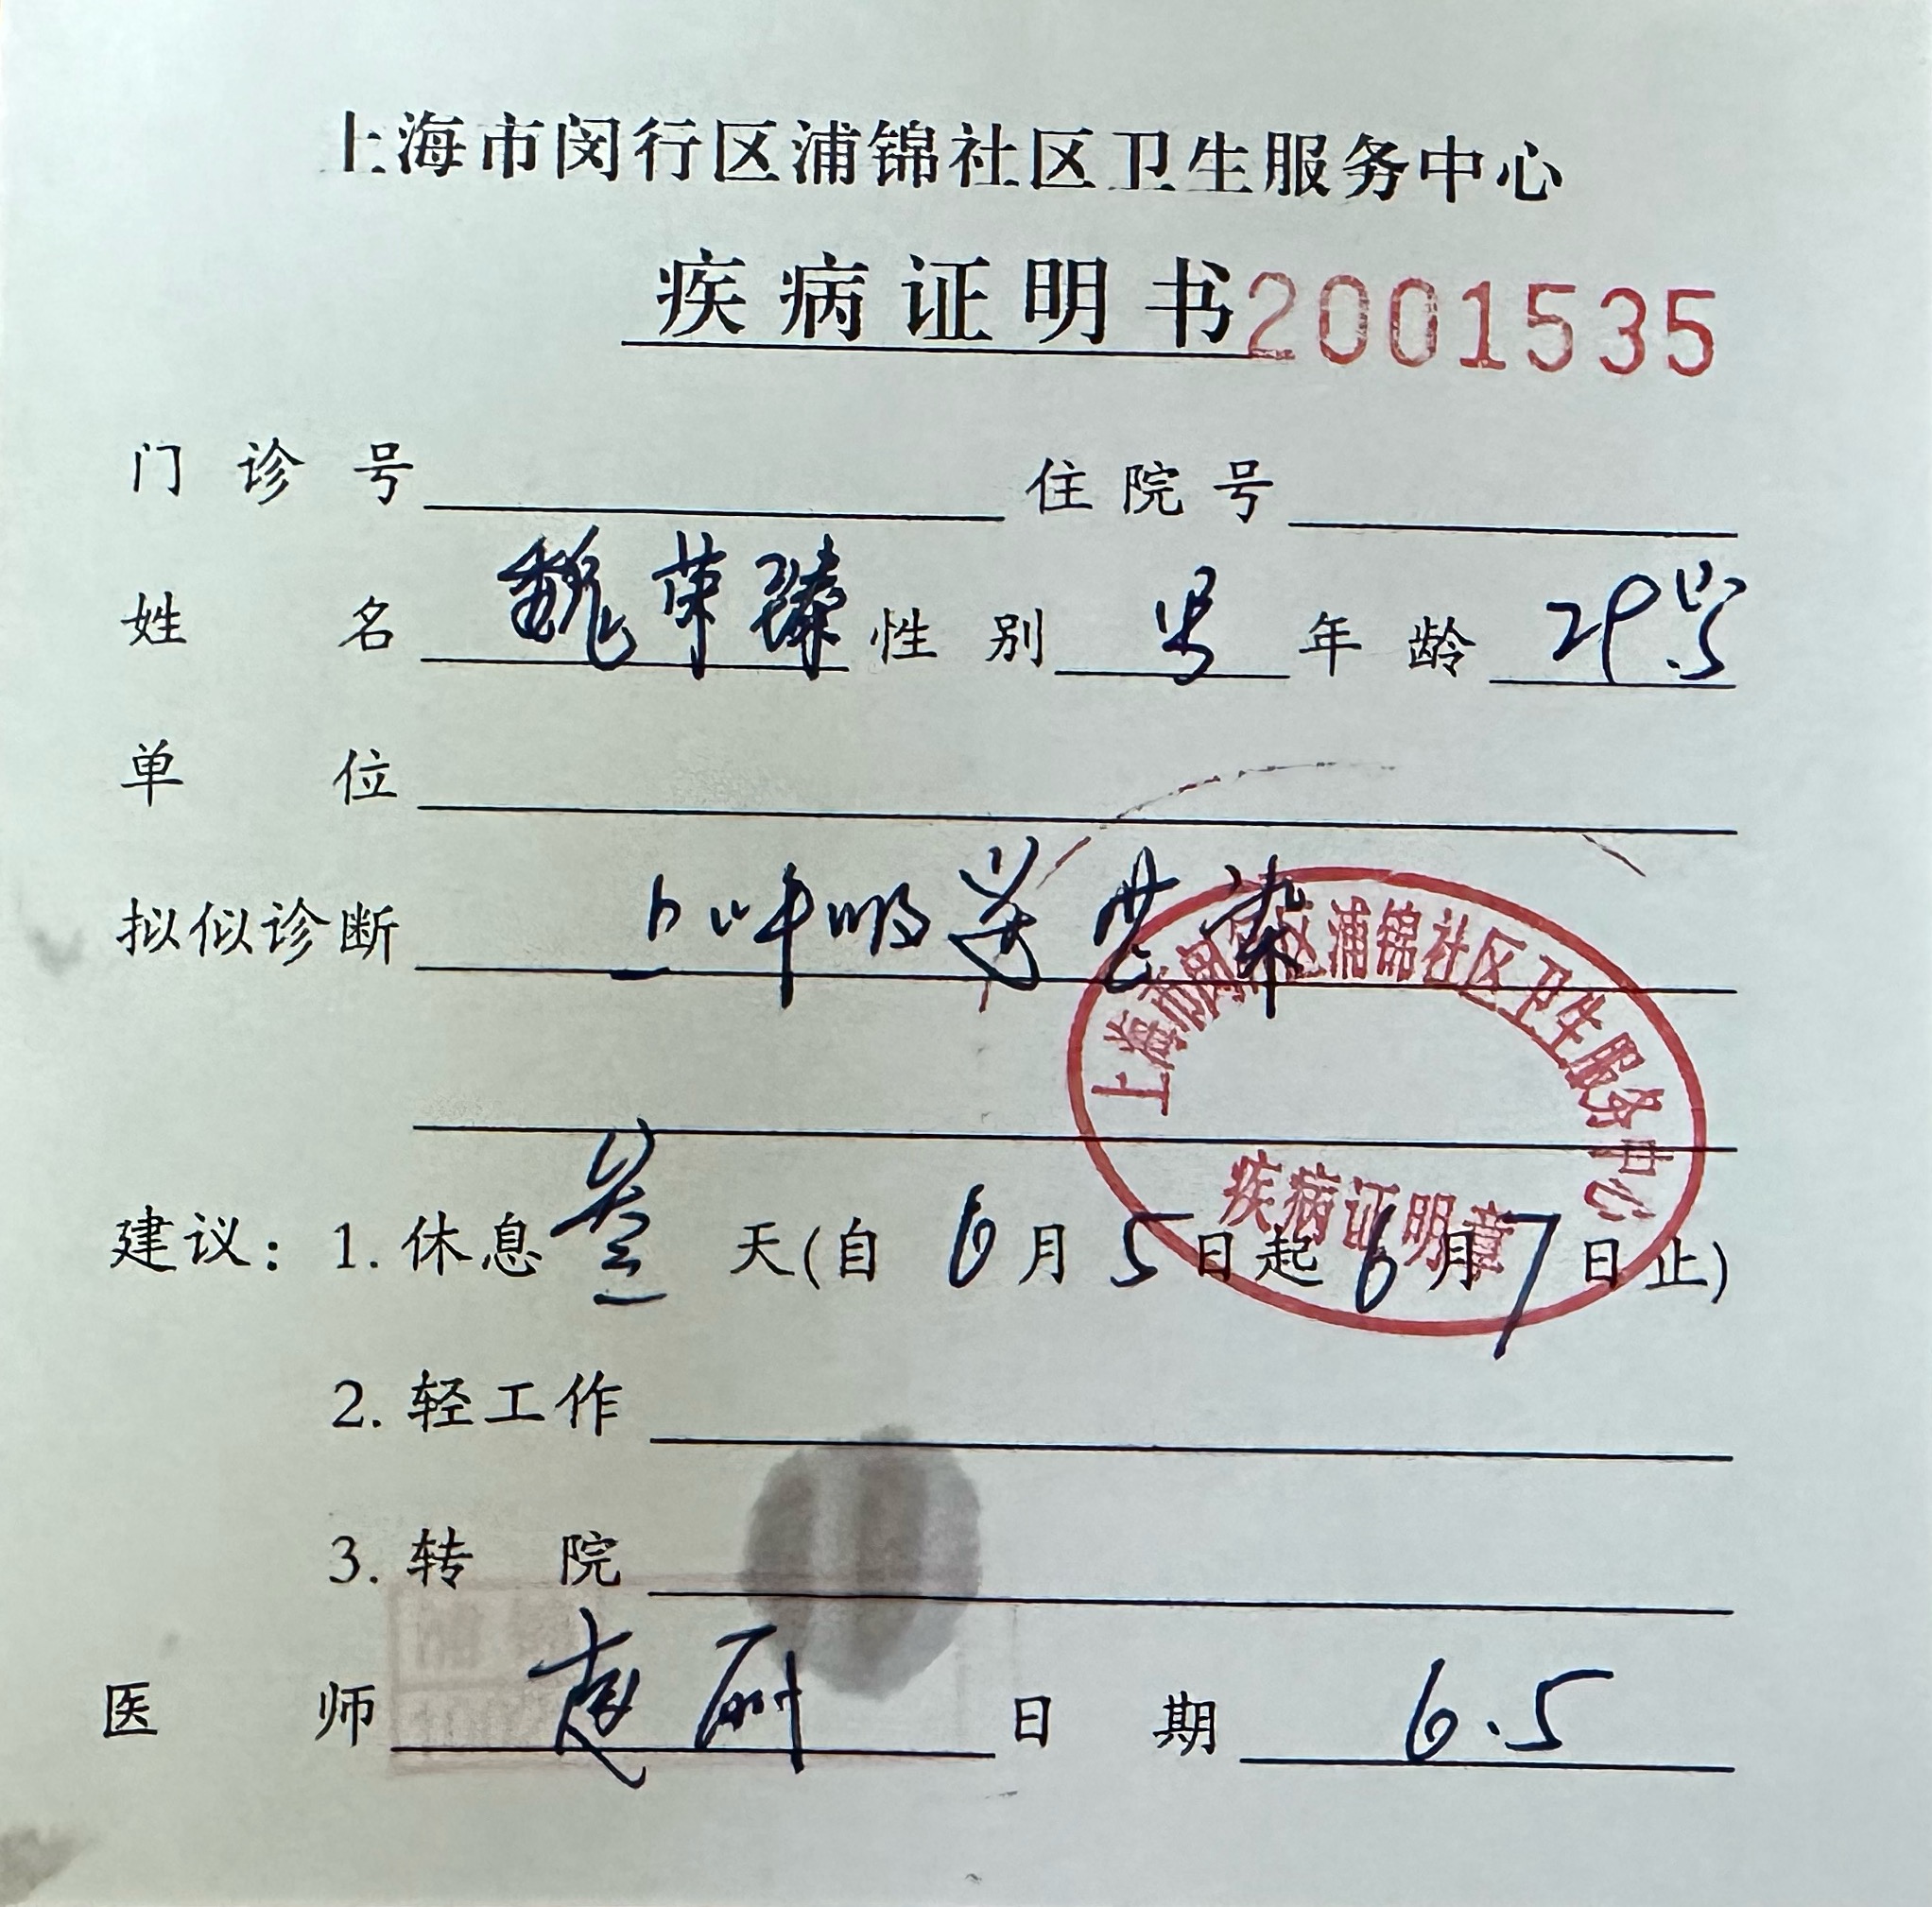 上海市闵行区浦锦社区卫生服务中心
疾病证明书2001535
门诊号 住院号
姓名 魏荣臻 性别 男 年龄 29岁
单位
拟似诊断 上呼吸道感染
上海市闵行区浦锦社区卫生服务中心
疾病证明章
建议：1. 休息 叁 天(自 6 月 5 日起 6 月 7 日止)
2. 轻工作
3. 转院
医师 赵 日期 6.5